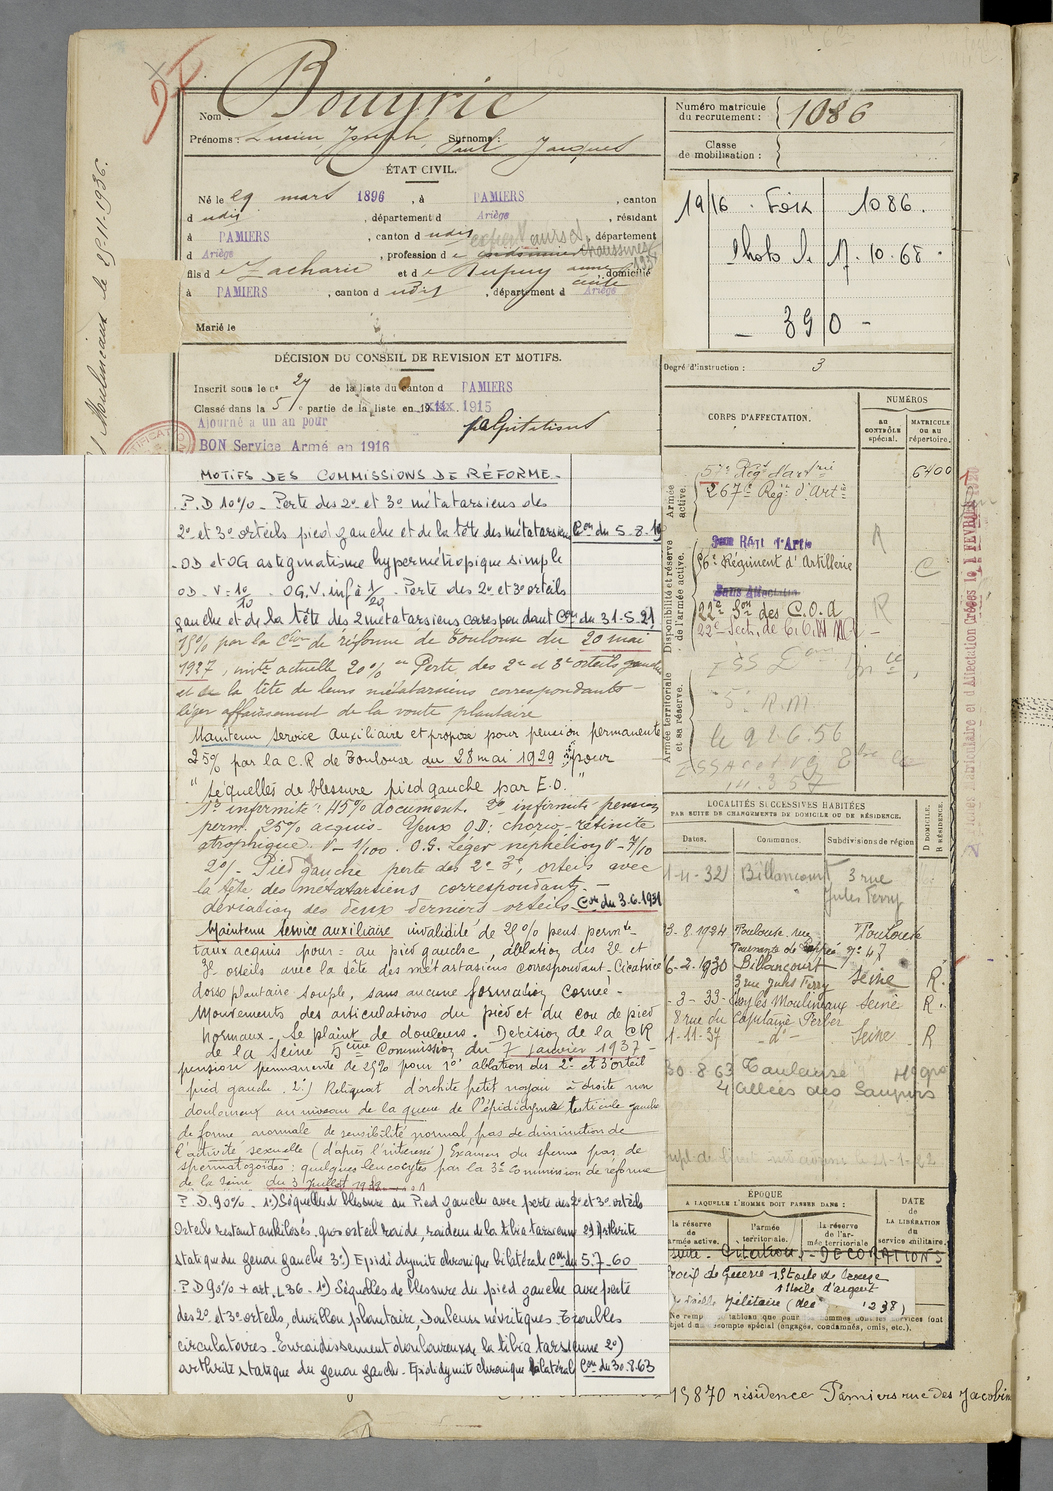 Nom : Bouyrie
Prénoms : Lucien, Joseph, Surnoms : Paul Jacques
ÉTAT CIVIL.
Né le 29 mars 1896, à PAMIERS, canton
d udis, département d Ariège, résidant
à PAMIERS, canton d udis, département
d Ariège, profession d
fils d e Zacharie et d e Rupuy anne domicilié
cécile
à PAMIERS, canton d udis, département d Ariège
Marié le
DÉCISION DU CONSEIL DE REVISION ET MOTIFS.
Inscrit sous le n° 27 de la liste du canton d PAMIERS
Classé dans la 5e partie de la liste en 1915
Ajourné à un an pour palpitations
BON Service Armé en 1916
Moulineaux le 29.11.1936.
MOTIFS DES COMMISSIONS DE RÉFORME.-
P.D 10%. Perte des 2e et 3e métatarsiens des
2e et 3e orteils pied gauche et de la tête des métatarsiens Con du 5.8.19
- OD et OG astigmatisme hypermétropique simple
OD. V = 10/10. OG.V. inf à 1/20. Perte des 2e et 3e orteils
gauche et de la tête des 2 métatarsiens correspondant Con du 31.5.21
15% par la Cion de réforme de Toulouse du 20 mai
1927, invté actuelle 20% Perte des 2e et 3e orteils gauche
et de la tête de leurs métatarsiens correspondants -
léger affaissement de la voute plantaire
Maintenu Service Auxiliaire et proposé pour pension permanente
25% par la C.R de Toulouse du 28 mai 1929 pour
"Séquelles de blessure pied gauche par E.O."
1re infirmité : 45% document. 2e infirmité pension
perm. 25% acquis. Yeux O.D : chorio-rétinite
atrophique. V = 1/100. O.G. Léger néphélion V = 7/10
2e/- Pied gauche perte des 2e 3e orteils avec
la tête des métatarsiens correspondants. -
déviation des deux derniers orteils Con du 3.6.1931
Maintenu service auxiliaire invalidité de 25% pens. permte
taux acquis pour : au pied gauche, ablation des 2e et
3e orteils avec la tête des métatarsiens correspondant - Cicatrice
dorso plantaire souple, sans aucune formation cornée -
Mouvements des articulations du pied et du cou de pied
normaux. Se plaint de douleurs. Décision de la CR
de la Seine 5ème Commission du 7 janvier 1937 -
pension permanente de 25% pour 1°/ ablation des 2e et 3e orteil
pied gauche. 2°) Reliquat d'orchite petit noyau à droite non
douloureux au niveau de la queue de l'épididyme testicule gauche
de forme normale de sensibilité normal, pas de diminution de
l'activité sexuelle (d'après l'intéressé) Examen du sperme pas de
spermatozoïdes : quelques leucocytes par la 3e Commission de réforme
de la Seine du 3 juillet 1938
P.D. 90%. 1°) Séquelles de blessure au Pied gauche avec perte des 2e et 3e orteils
Orteils restant ankilosés, gros orteil raide, raideur de la tibia tarsienne 2°) Arthrite
statique du genou gauche 3°) Epididymite chronique bilatérale Con du 5.7.60
P D 90% + art. L36. 1°) Séquelles de blessure du pied gauche avec perte
des 2e et 3e orteils, durillon plantaire, Douleurs névritiques. Troubles
circulatoires. Enraidissement douloureux de la tibia tarsienne 2°)
arthrite statique du genou gauche. Epididymite chronique bilatéral Con du 30.8.63
Numéro matricule
du recrutement : 1086
Classe
de mobilisation :
1916. Foix 1086.
Photo le 17.10.68.
- 390 -
Degré d'instruction : 3
CORPS D'AFFECTATION.
NUMÉROS
AU CONTRÔLE spécial.
MATRICULE OU AU répertoire.
Armée active.
57e Régt d'artrie 6400
267e Régt d'Artrie
Disponibilité et réserve de l'armée active.
16e Régiment d'Artillerie R C
Sans Affectation
22e Son des C.O.A R
22e Sect. de C.O.M.A -
Armée territoriale et sa réserve.
5e R.M
le 9 2.6.56
14.3.57
LOCALITÉS SUCCESSIVES HABITÉES
PAR SUITE DE CHANGEMENTS DE DOMICILE OU DE RÉSIDENCE.
Dates. Communes. Subdivisions de région
D DOMICILE. R RÉSIDENCE.
1-11-32 Billancourt 3 rue
Jules Ferry
3-8.1924 Toulouse rue Toulouse
n° 47
6-2-1930 Billancourt Seine R.
3 rue Jules Ferry
- 3 - 33 - Issy les Moulineaux Seine R.
8 rue du Capitaine Ferber
1-11-37 - d° - Seine R
30.8.63 Toulouse Hte Gne
4 allées des Soupirs
ÉPOQUE
A LAQUELLE L'HOMME DOIT PASSER DANS :
la réserve de l'armée active.
l'armée territoriale.
la réserve de l'armée territoriale
DATE DE LA LIBÉRATION du service militaire.
suite. Citations. - DECORATIONS
Croix de Guerre 1 Etoile de bronze
1 Etoile d'argent
Médaille Militaire (
résidence Pamiers rue des Jacobins